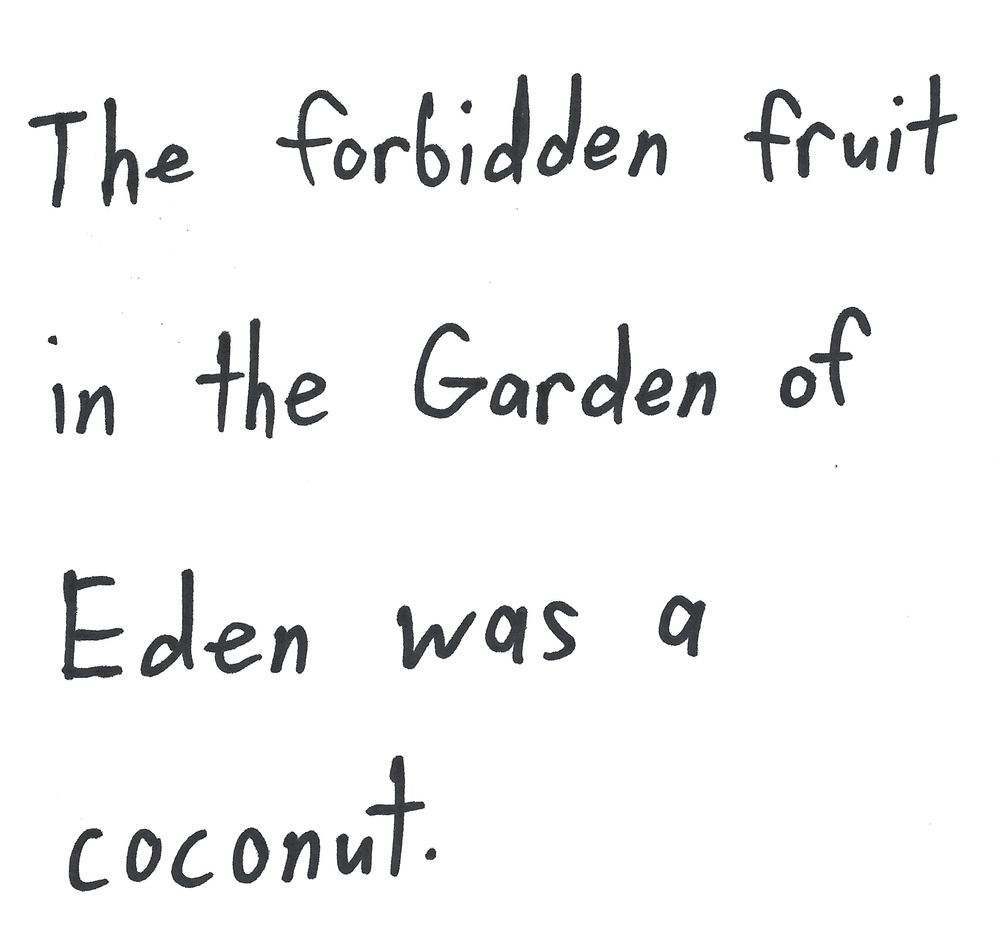 The forbidden fruit
in the Garden of
Eden was a
coconut.